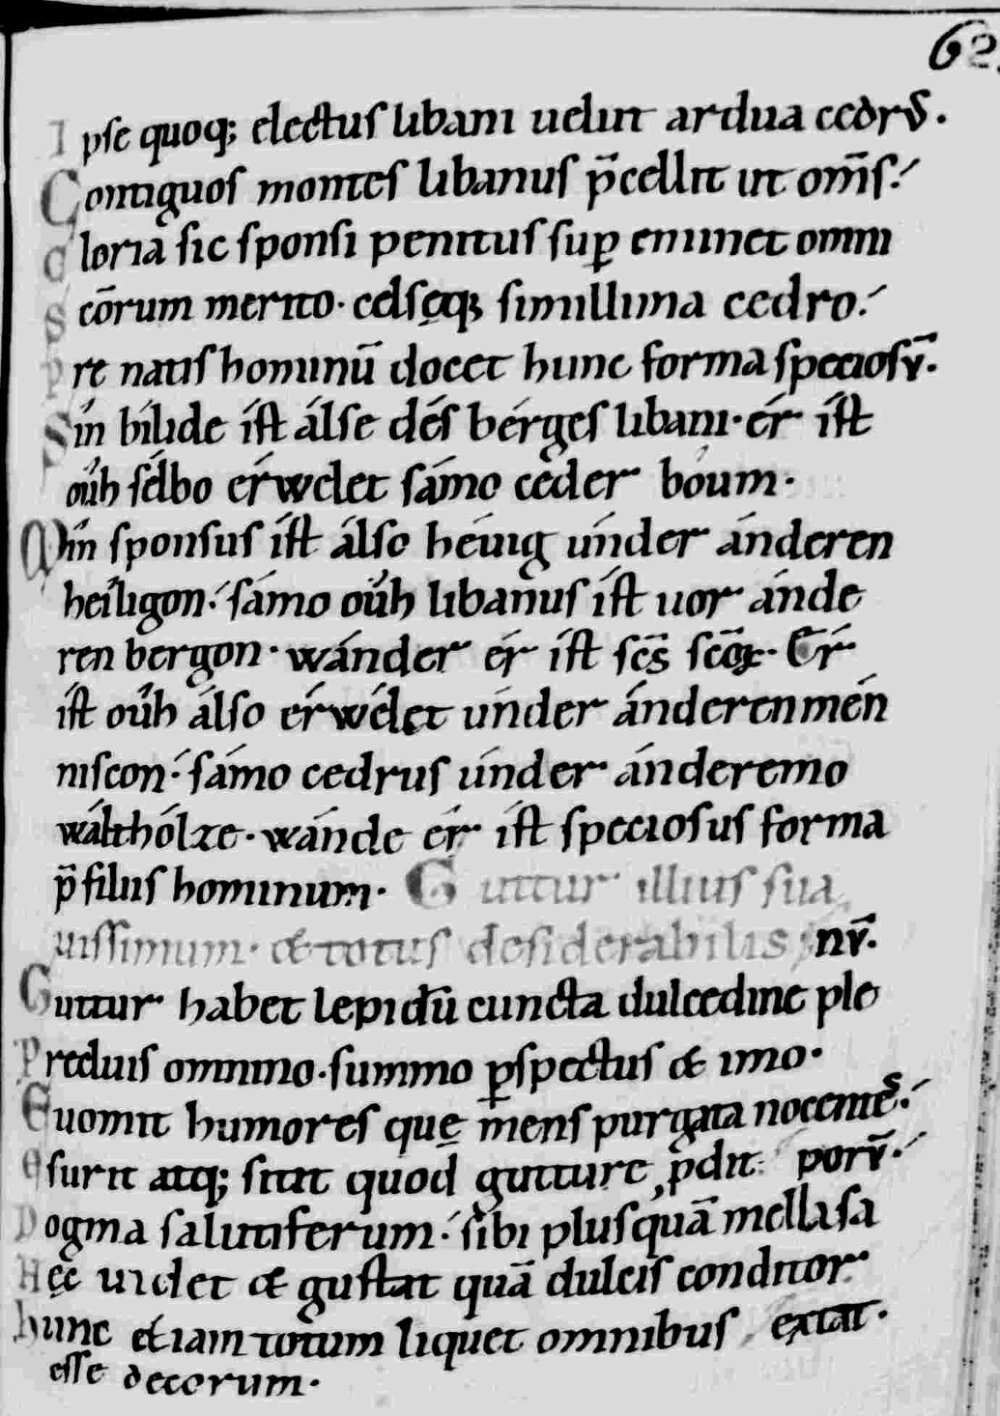 62.
Ipse quoq; electus libani uelut ardua cedrꝰ.
Contiguos montes libanus p̄cellit ut om̄s.
Gloria sic sponsi penitus suꝑ eminet omni
Sc̄orum merito. celsęq; simillima cedro.
Pre natis hominū docet hunc forma speciosū.
Sín bílide íst álse dés bérges libani. ér íst
oúh sélbo érwelet sámo céder bóum.
Mín sponsus íst álso hévig únder ánderen
heíligon. sámo oúh libanus íst uor ánde
ren bergon. wánder ér íst sc̄s sc̄oꝝ. Ér
íst oúh álso érwélet únder ánderen mén
niscon. sámo cedrus únder ánderemo
wálthólze. wánde ér íst speciosus forma
p̄ filiis hominum. Guttur illius sua
uissimum. & totus desiderabilis.
Guttur habet lepidū cuncta dulcedine ple nū.
Preduis omnino. summo ꝑspectus & imo.
Euomit humores quę mens purgata nocentes.
Esurit atq; sitit quod gutture p̄dit
Dogma salutiferum. sibi plusquā mella sa porū.
Hęc uidet & gustat quā dulcis conditor extat.
Hunc etiam totum liquet omnibus
esse decorum.